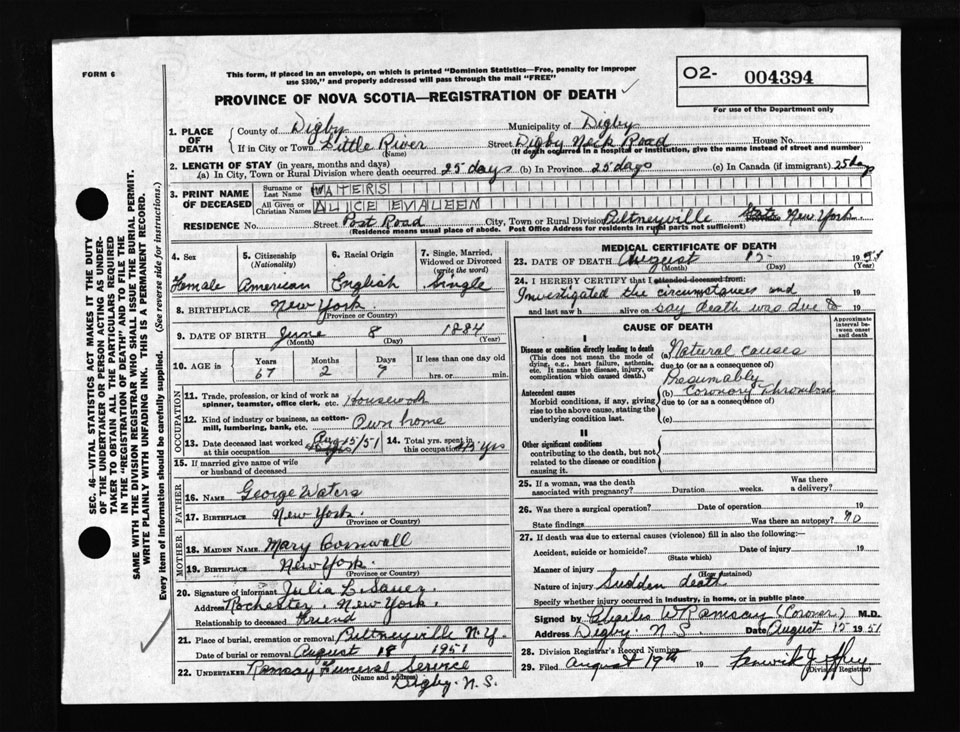 FORM 6
This form, if placed in an envelope, on which is printed "Dominion Statistics—Free, penalty for improper
use $300," and properly addressed will pass through the mail "FREE"
PROVINCE OF NOVA SCOTIA—REGISTRATION OF DEATH ✓
O2- 004394
For use of the Department only
1. PLACE OF DEATH
County of Digby Municipality of Digby
If in City or Town Little River (Name) Street Digby Neck Road House No.
(If death occurred in a hospital or institution, give the name instead of street and number)
2. LENGTH OF STAY (in years, months and days)
(a) In City, Town or Rural Division where death occurred 25 days (b) In Province 25 days (c) In Canada (if immigrant) 25 days
3. PRINT NAME OF DECEASED
Surname or Last Name WATERS
All Given or Christian Names ALICE EVALEEN
RESIDENCE No. Street Post Road City, Town or Rural Division Pultneyville State New York
(Residence means usual place of abode. Post Office Address for residents in rural parts not sufficient)
4. Sex Female
5. Citizenship (Nationality) American
6. Racial Origin English
7. Single, Married, Widowed or Divorced (write the word) Single
8. BIRTHPLACE New York (Province or Country)
9. DATE OF BIRTH June 8 1884
(Month) (Day) (Year)
10. AGE in Years 67 Months 2 Days 7 If less than one day old hrs. or min.
OCCUPATION
11. Trade, profession, or kind of work as spinner, teamster, office clerk, etc. Housework
12. Kind of industry or business, as cotton-mill, lumbering, bank, etc. Own home
13. Date deceased last worked at this occupation Aug 15/51
14. Total yrs. spent in this occupation yrs
15. If married give name of wife or husband of deceased
FATHER
16. NAME George Waters
17. BIRTHPLACE New York.
(Province or Country)
MOTHER
18. MAIDEN NAME Mary Cornwall
19. BIRTHPLACE New York.
(Province or Country)
20. Signature of informant Julia L.
Address Rochester. New York.
Relationship to deceased Friend
21. Place of burial, cremation or removal Pultneyville N.Y.
Date of burial or removal August 18 1951
22. UNDERTAKER Ramsay Funeral Service
(Name and address) Digby. N.S.
MEDICAL CERTIFICATE OF DEATH
23. DATE OF DEATH August 15 1951
(Month) (Day) (Year)
24. I HEREBY CERTIFY that I attended deceased from:
Investigated the circumstances and 19
and last saw h alive on say death was due to 19
CAUSE OF DEATH
Approximate interval between onset and death
I
Disease or condition directly leading to death
(This does not mean the mode of dying, e.g., heart failure, asthenia, etc. It means the disease, injury, or complication which caused death.)
(a) Natural causes
due to (or as a consequence of)
Presumably
Antecedent causes
Morbid conditions, if any, giving rise to the above cause, stating the underlying condition last.
(b) Coronary Thrombosis
due to (or as a consequence of)
(c)
II
Other significant conditions
contributing to the death, but not related to the disease or condition causing it.
25. If a woman, was the death associated with pregnancy? Duration weeks. Was there a delivery?
26. Was there a surgical operation? Date of operation 19
State findings Was there an autopsy? no
27. If death was due to external causes (violence) fill in also the following:—
Accident, suicide or homicide? (State which) Date of injury 19
Manner of injury (How sustained)
Nature of injury Sudden death
Specify whether injury occurred in industry, in home, or in public place
Signed by Charles W Ramsay (Coroner) M.D.
Address Digby. N.S. Date August 15 1951
28. Division Registrar's Record Number
29. Filed August 19th 19
(Division Registrar)
SEC. 46—VITAL STATISTICS ACT MAKES IT THE DUTY
OF THE UNDERTAKER OR PERSON ACTING AS UNDER-
TAKER TO OBTAIN ALL THE PARTICULARS REQUIRED
IN THE "REGISTRATION OF DEATH" AND TO FILE THE
SAME WITH THE DIVISION REGISTRAR WHO SHALL ISSUE THE BURIAL PERMIT.
WRITE PLAINLY WITH UNFADING INK. THIS IS A PERMANENT RECORD.
Every item of information should be carefully supplied. (See reverse side for instructions.)